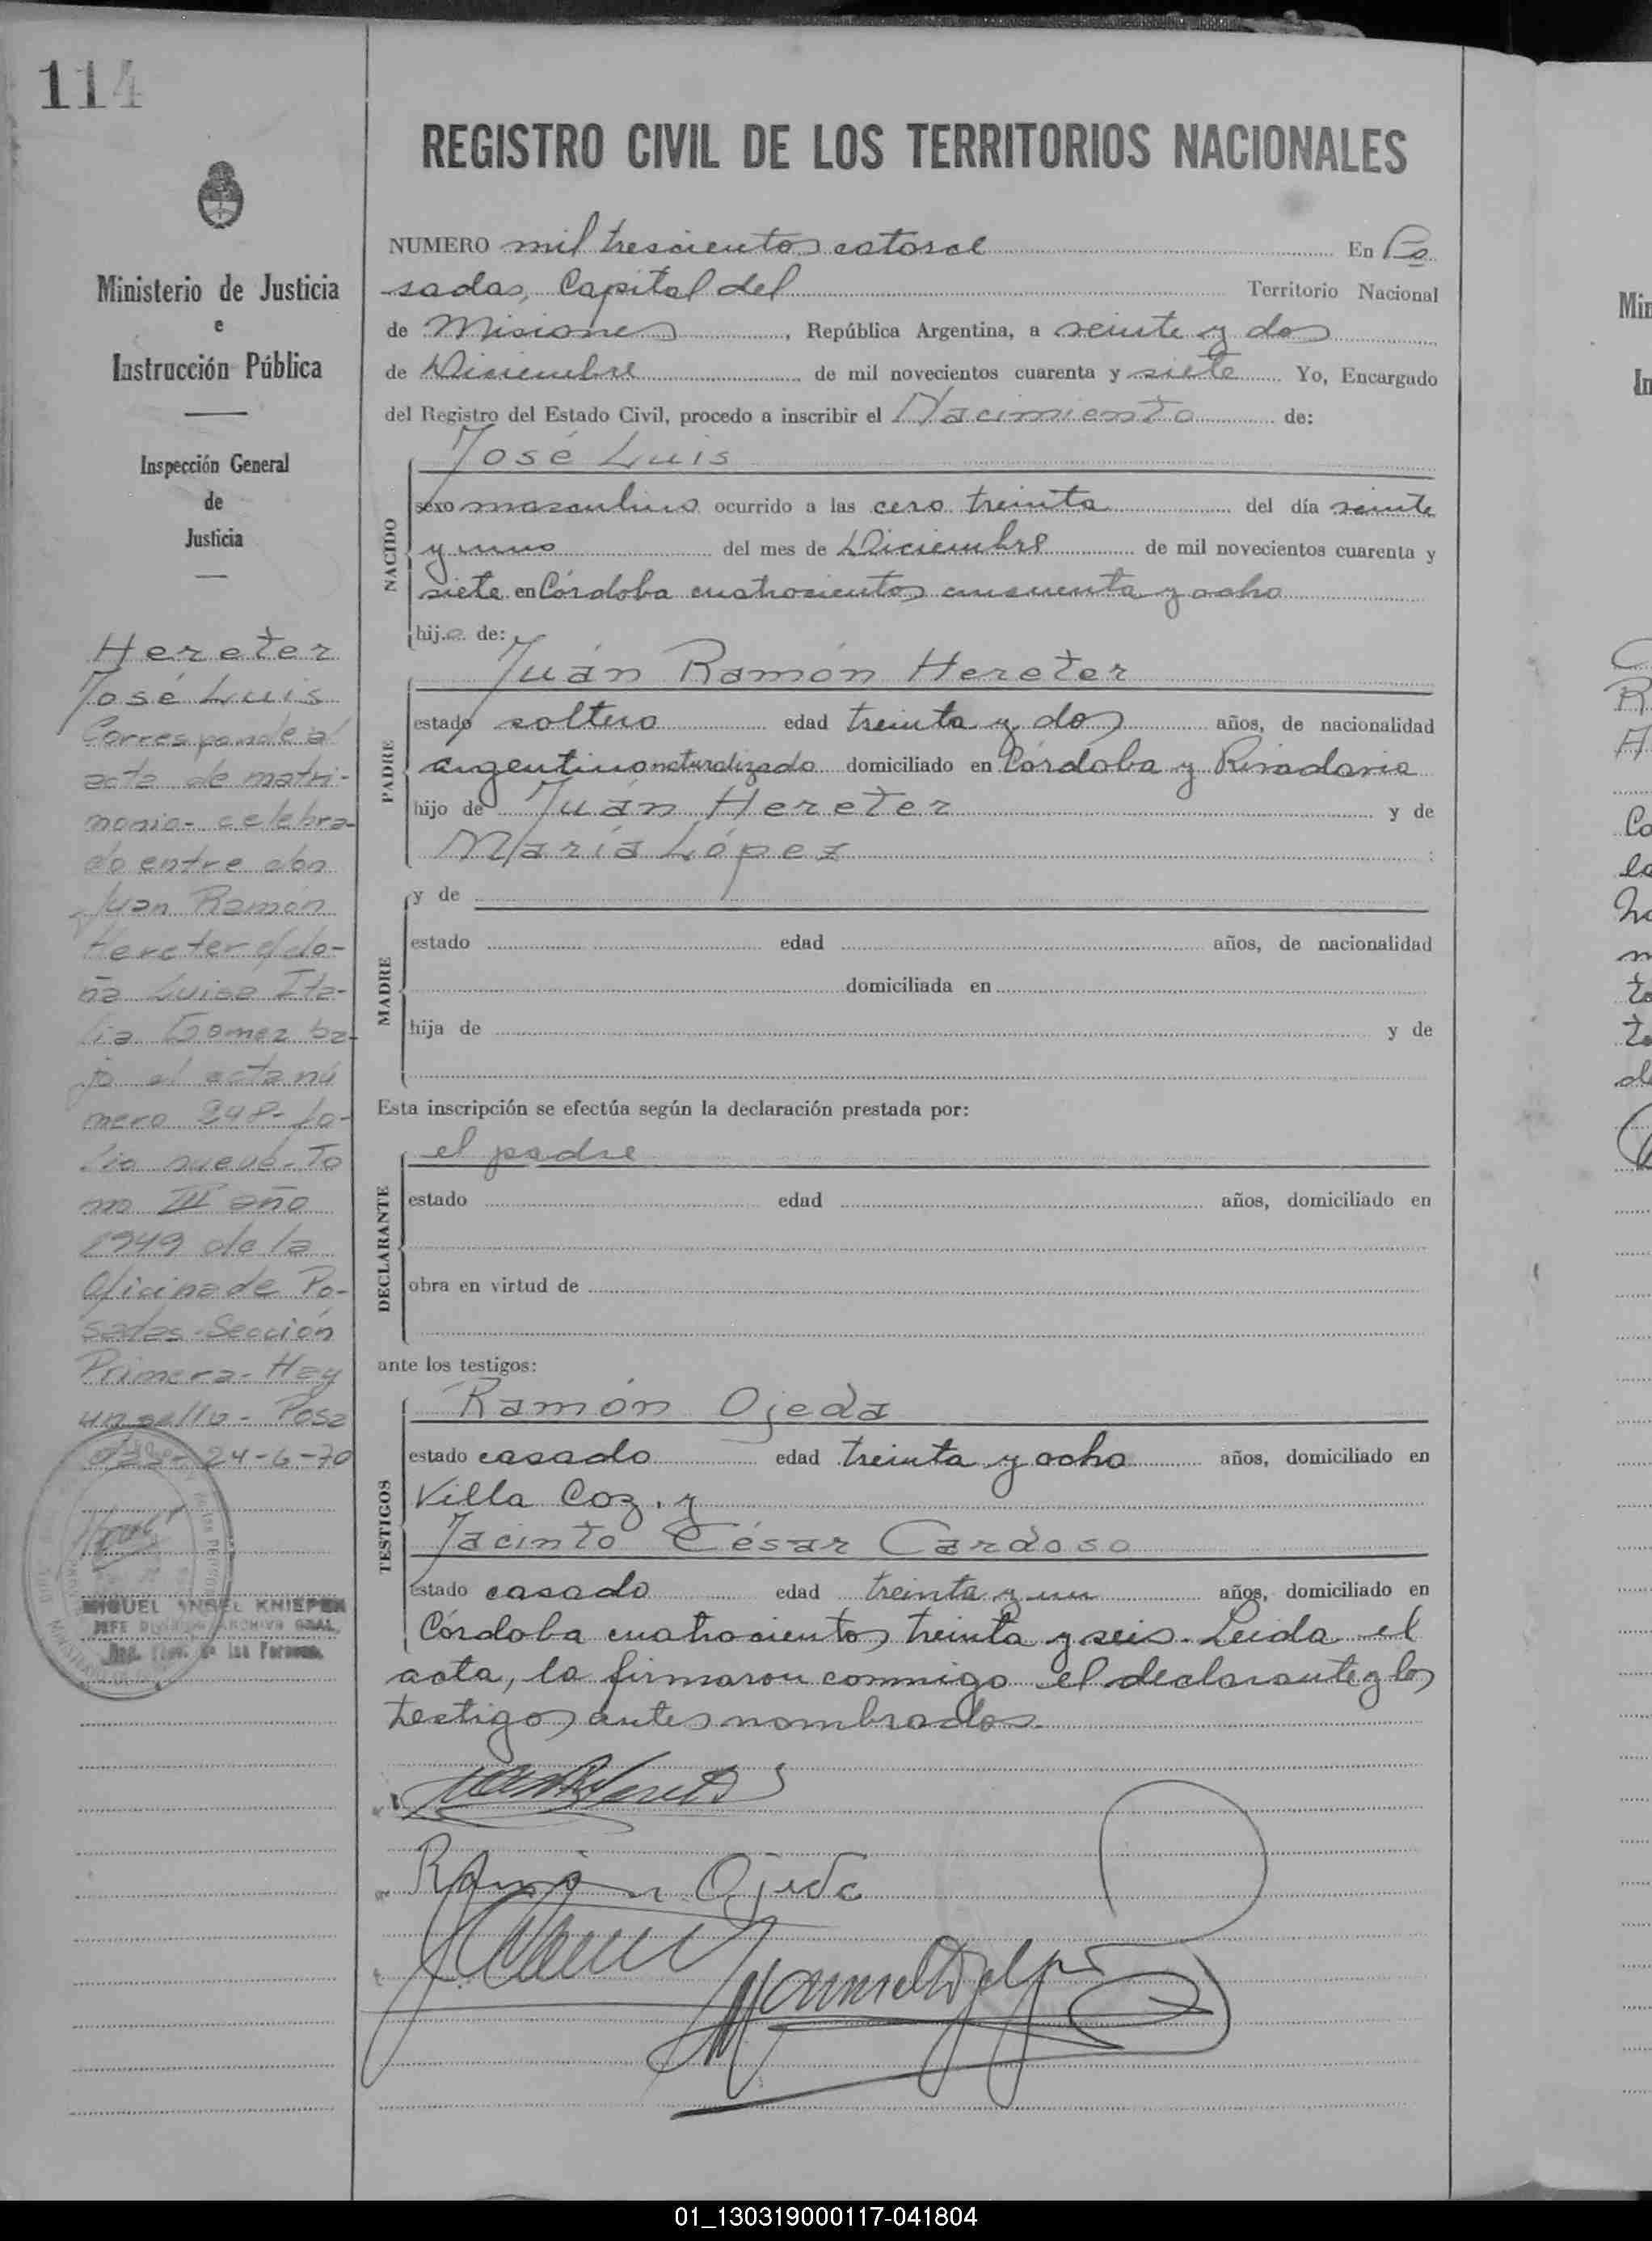 114
REGISTRO CIVIL DE LOS TERRITORIOS NACIONALES
Ministerio de Justicia
e
Instrucción Pública
Inspección General
de
Justicia
Hereter
José Luis
Corresponde al
acta de matri-
monio - celebra-
do entre don
Juan Ramón
Hereter y do-
ña Luisa Ita-
lia Gomez ba-
jo el acta nú
mero 248- fo-
lio nueve - To
mo III año
1949 de la
Oficina de Po-
sadas - Sección
Primera - Hay
un sello - Posa
das - 24-6-70
MIGUEL ANGEL KNIEPER
JEFE DIVISION ARCHIVO GRAL.
de las Personas
NUMERO mil trescientos catorce En Po
sadas, Capital del Territorio Nacional
de Misiones, República Argentina, a veinte y dos
de Diciembre de mil novecientos cuarenta y siete Yo, Encargado
del Registro del Estado Civil, procedo a inscribir el Nacimiento de:
NACIDO
José Luis
sexo masculino ocurrido a las cero treinta del día veinte
y uno del mes de Diciembre de mil novecientos cuarenta y
siete en Córdoba cuatrocientos cincuenta y ocho
hijo de:
PADRE
Juán Ramón Hereter
estado soltero edad treinta y dos años, de nacionalidad
argentino naturalizado domiciliado en Córdoba y Rivadavia
hijo de Juán Hereter y de
María López
MADRE
y de
estado edad años, de nacionalidad
domiciliada en
hija de y de
Esta inscripción se efectúa según la declaración prestada por:
DECLARANTE
el padre
estado edad años, domiciliado en
obra en virtud de
ante los testigos:
TESTIGOS
Ramón Ojeda
estado casado edad treinta y ocho años, domiciliado en
Villa Coz, y
Jacinto César Cardoso
estado casado edad treinta y un años, domiciliado en
Córdoba cuatrocientos treinta y seis. Leida el
acta, la firmaron conmigo el declarante y los
testigos antes nombrados.
Ramón Ojeda
01_130319000117-041804